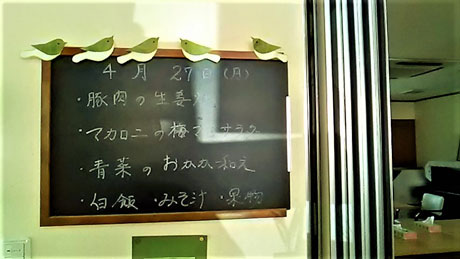 4月27日(月)
・豚肉の生姜
・マカロニの梅マヨサラダ
・青菜のおかか和え
・白飯 ・みそ汁 ・果物